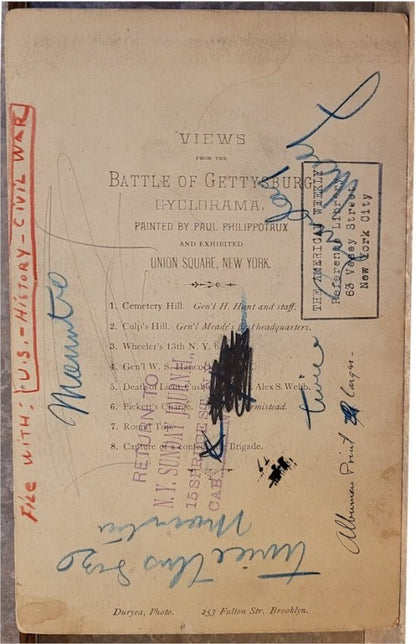 VIEWS
FROM THE
BATTLE OF GETTYSBURG
CYCLORAMA.
PAINTED BY PAUL PHILIPPOTAUX
AND EXHIBITED
UNION SQUARE, NEW YORK.
1. Cemetery Hill. Gen'l H. Hunt and staff.
2. Culp's Hill. Gen'l Meade's headquarters.
3. Wheeler's 13th N. Y.
4. Gen'l W. S. Hancock
5. Death of Lieut. Cushing Alex S. Webb.
6. Pickett's Charge. Armistead.
7. Round Top.
8. Capture of Brigade.
Duryea, Photo. 253 Fulton Str. Brooklyn.
FILE WITH: U.S. - HISTORY - CIVIL WAR
THE AMERICAN WEEKLY
Reference Library
63 Vesey Street
New York City
RETURN TO
N. Y. SUNDAY JOURNAL,
twice
Albumen Print
twice this size